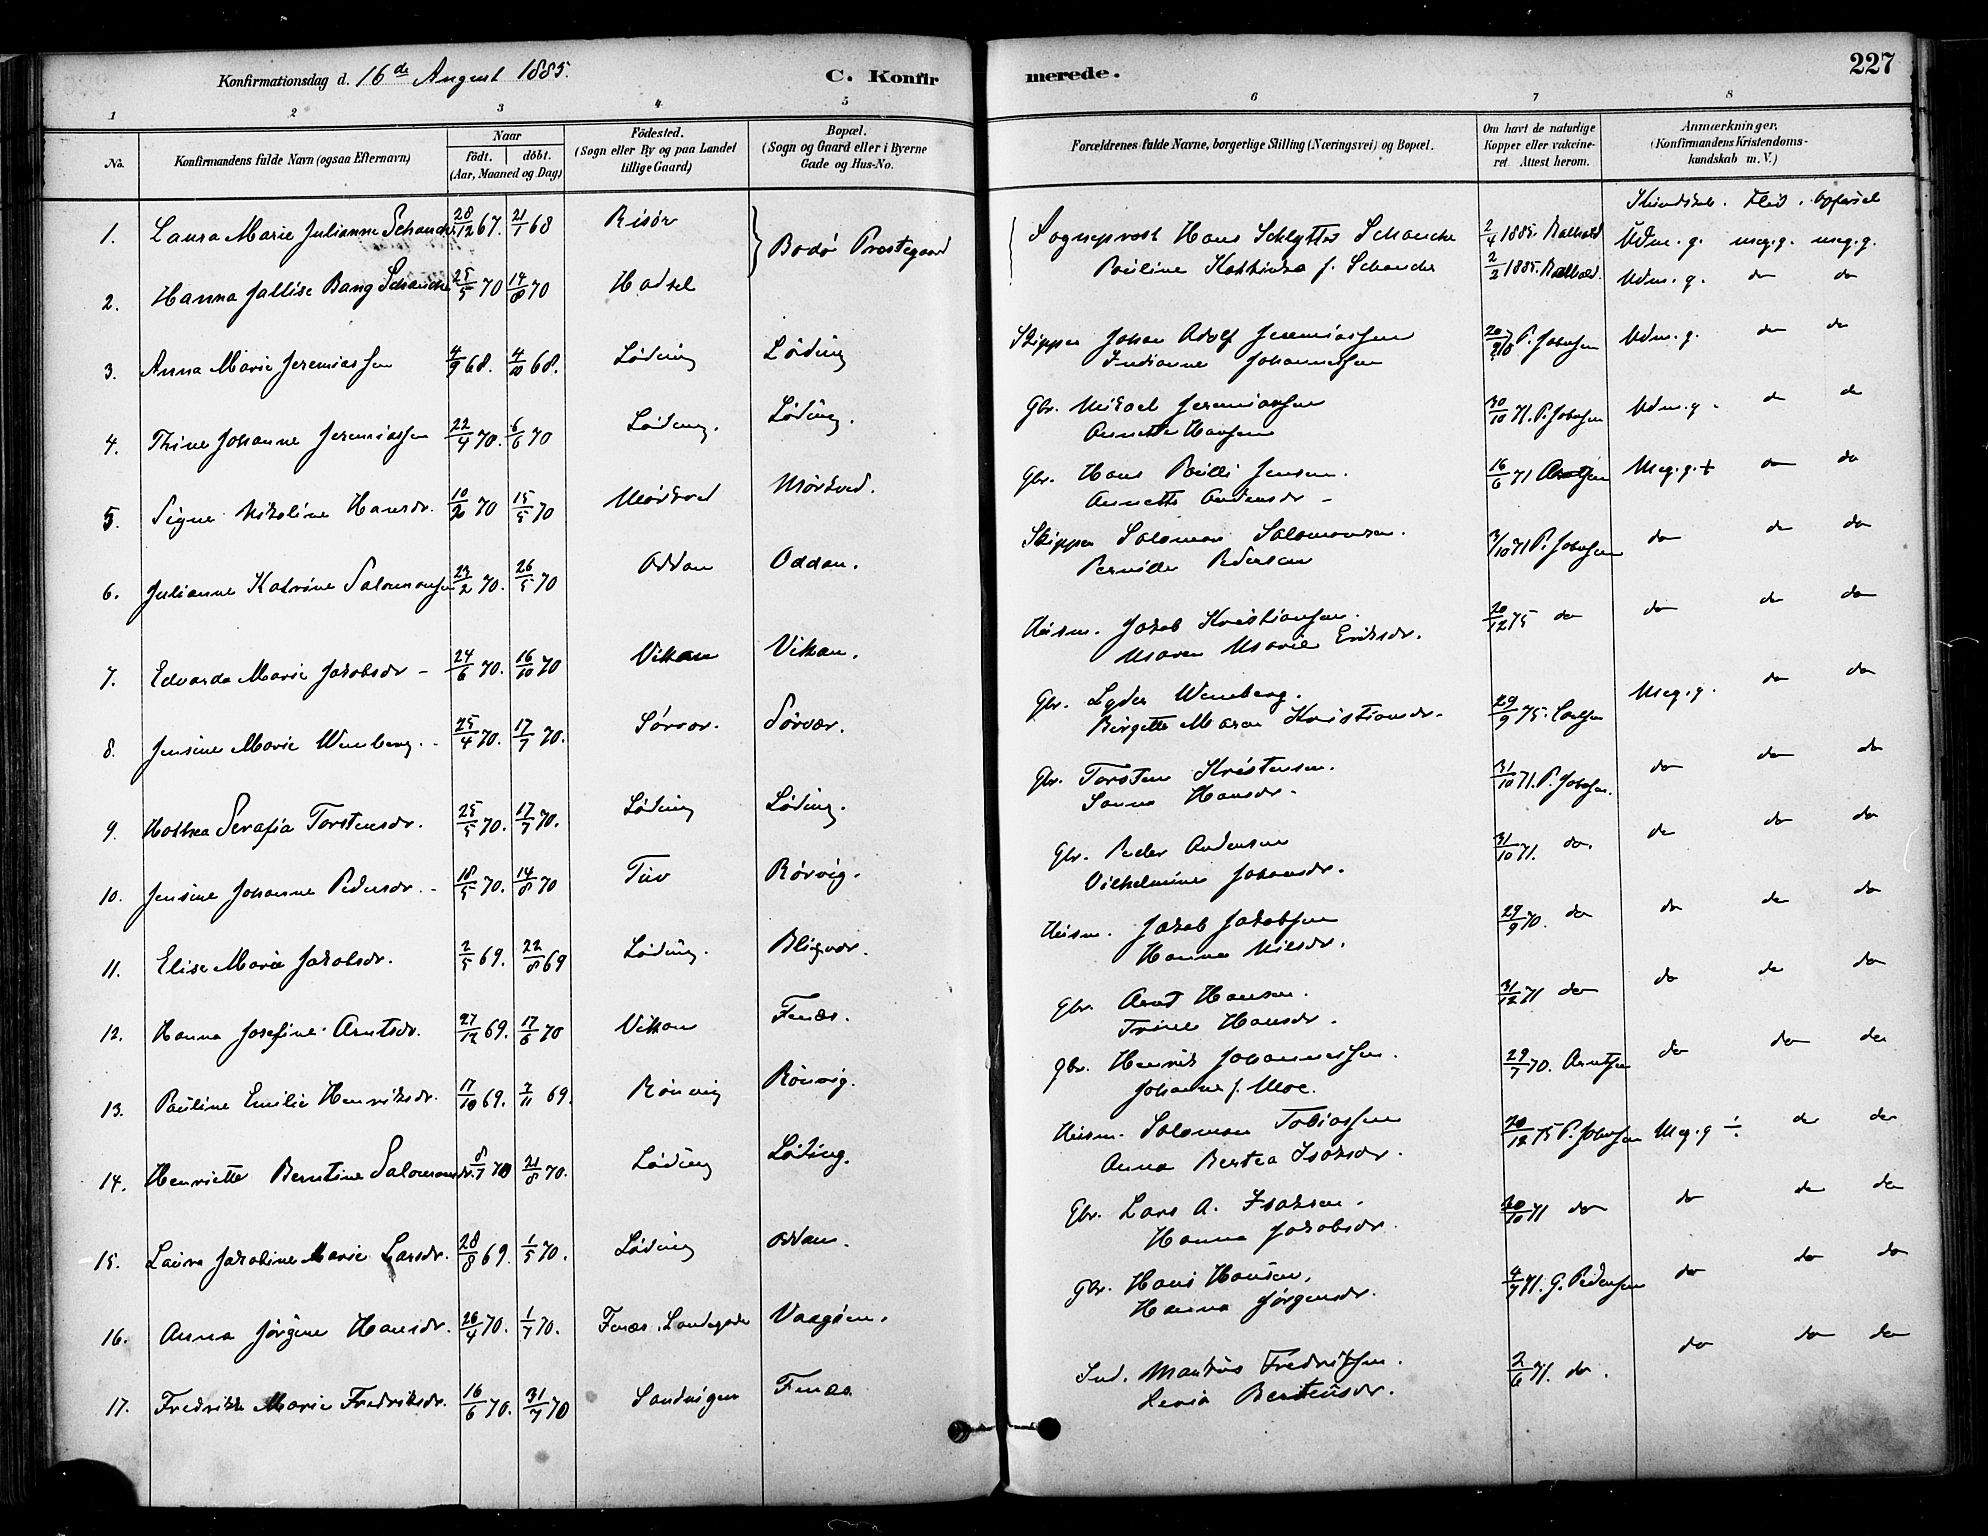 Konfirmationsdag d. 16de August 1885. C. Konfirmerede. 227
1 2 3 4 5 6 7 8
No. Konfirmandens fulde Navn (ogsaa Efternavn) Naar födt. döbt. (Aar, Maaned og Dag) Födested. (Sogn eller By og paa Landet tillige Gaard) Bopæl. (Sogn og Gaard eller i Byerne Gade og Hus-No. Forældrenes fulde Navne, borgerlige Stilling (Næringsvei) og Bopæl. Om havt de naturlige Kopper eller vakcineret. Attest herom. Anmærkninger. (Konfirmandens Kristendomskundskab m. V.)
Kundskab. Flid. Opførsel
1. Laura Marie Julianne Schanche 28/12 67. 21/1 68 Risör Bodø Prestegaard Sogneprest Hans Schlytter Schanche 2/4 1885. Udm. g. meg. g. meg. g.
2. Hanna Jallise Bang Schanche 25/5 70 14/8 70 Hadsel Pauline Kathinka f. Schanche 2/2 1885. Udm. g. do do
3. Anna Marie Jeremiassen 4/9 68. 4/10 68. Löding Löding Skipper Johan Adolf Jeremiassen P. Johnsen Udm. g. do do
Indianne Johannessen
4. Thine Johanne Jeremiassen 22/4 70. 6/6 70 Löding. Löding. Gbr. Mikael Jeremiassen 30/10 71. P. Johnsen Udm. g. do do
Annette Hansen
5. Signe Nikoline Hansdr. 10/2 70 15/5 70 Mörkved Mörkved. Gbr. Hans Jensen. 16/6 71 Arntzen Meg. g. + do do
Annette Andersdr -
6. Julianne Katrine Salomonsen 23/2 70. 26/5 70 Oddan Oddan. Skipper Salomon Salomonsen. 3/10 71 P. Johnsen do do do
Pernille Pedersen
7. Edvarda Marie Jakobsdr - 24/6 70. 16/10 70 Vikan Vikan. Husm. Jakob Kristiansen. 20/12 75 do do do do
Maren Marie Eriksdr.
8. Jensine Marie Wenberg. - 25/4 70. 17/7 70. Sörvær. Sörvær. Gbr. Lyder Wenberg. 29/9 75. Meg. g. do do
Birgitte Maren Kristiansdr.
9. Hathea Serafia Torstensdr. 25/5 70. 17/7 70. Löding Löding. Gbr. Torsten Kristensen. 31/10 71. P. Johnsen. do do do
Hansdr.
10. Jensine Johanne Pedersdr. - 18/5 70. 14/8 70 Tuv Rörvig. Gbr. Peder Andersen 31/10 71. do. do do do
Vilhelmine Johansdr.
11. Elise Marie Jakobsdr. 2/5 69. 22/8 69 Löding. Bligvær. Husm. Jakob Jakobsen 29/9 70. do do do do
Hanna Nilsdr.
12. Hanna Josefine Arntsdr. 27/12 69. 17/6 70 Vikan Fenæs. Gbr Arnt Hansen. 31/12 71 do do do do
Trine Hansdr.
13. Pauline Emilie Henriksdr. 17/10 69. 7/11 69. Rönvig Rönvig. Gbr. Henrik Johannessen. 29/7 70. Arntzen do do do
Johanne f. Moe.
14. Henriette Berntine Salomonsdr. 8/7 70 21/8 70. Löding Löding. Husm. Salomon Tobiassen 20/12 75 P. Johnsen Meg. g ÷ do do
Anna Bertea Isaksdr.
15. Laura Jakobine Marie Larsdr. 28/8 69. 1/5 70. Löding Oddan. Gbr. Lars A. Isaksen. 30/10 71 do do do do
Hanna Jakobsdr.
16. Anna Jörgine Hansdr. 26/4 70. 1/7 70. Fenæs. Landegode Vaagöen. Gbr. Hans Hansen. 4/7 71. G. Pedersen do do do
Hanna Jörgensdr.
17. Fredrikke Marie Fredriksdr. 16/6 70. 31/7 70 Sandvigen Fenæs Ind. Markus Fredriksen. 2/6 71. do. do do do
Berteusdr.